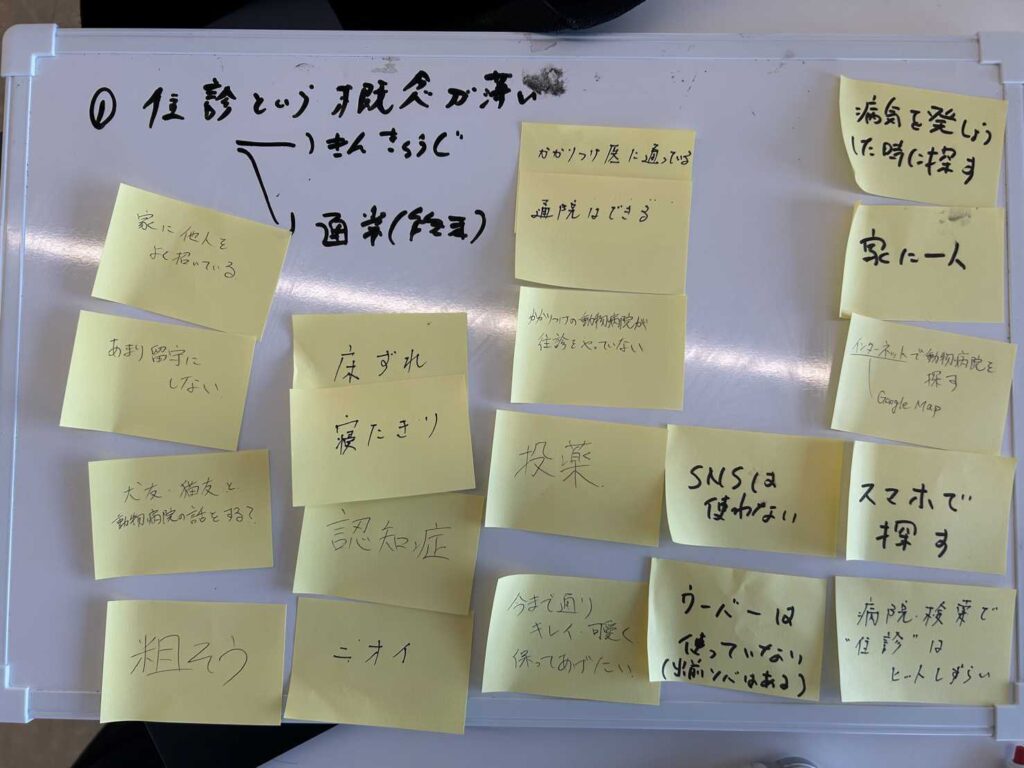 ① 往診という概念が薄い
きんきゅうじ
通常(終末)
家に他人を
よく招いている
あまり留守に
しない
犬友・猫友と
動物病院の話をする?
粗そう
床ずれ
寝たきり
認知症
ニオイ
かかりつけ医に通っている
通院はできる
かかりつけの動物病院が
往診をやっていない
投薬
今まで通り
キレイ・可愛く
保ってあげたい
SNSは
使わない
ウーバーは
使っていない
(出前ソバはある)
病気を発しょう
した時に探す
家に一人
インターネットで動物病院を
探す
Google Map
スマホで
探す
病院・検索で
"往診"は
ヒットしずらい